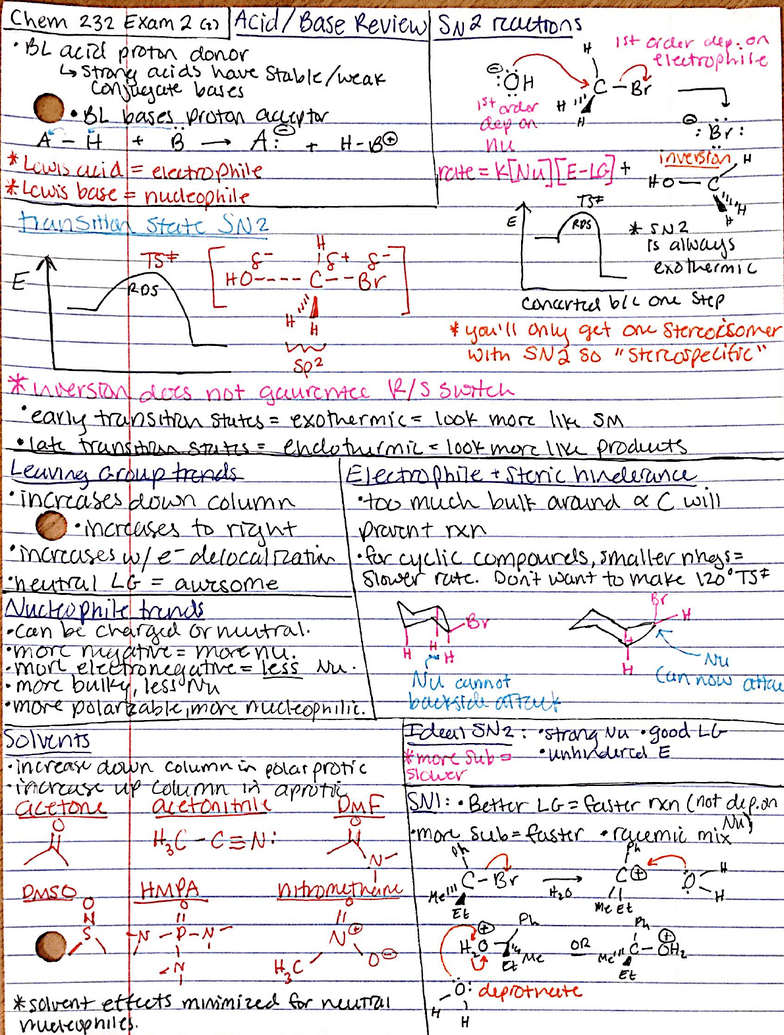 Chem 232 Exam 2 (2)
Acid/Base Review
• BL acid proton donor
↳ strong acids have stable/weak
conjugate bases
• BL bases proton acceptor
A – H + B̈ → A:⊖ + H-B⊕
* Lewis acid = electrophile
* Lewis base = nucleophile
SN2 reactions
1st order dep. on
electrophile
⊖:ÖH
H
C – Br
H
H
1st order
dep on
nu
⊖
:Br:
rate = K[Nu][E-LG] +
inversion
H
HO – C
H
H
E
TS‡
RDS
* SN2
is always
exothermic
concerted b/c one step
* you'll only get one stereoisomer
with SN2 so "stereospecific"
transition state SN2
E
TS‡
RDS
H
δ- δ+ δ-
HO---- C ---Br
H H
sp2
‡
* inversion does not gaurentee R/S switch
• early transition states = exothermic = look more like SM
• late transition states = endothermic = look more like products
Leaving Group trends
• increases down column
• increases to right
• increases w/ e- delocalization
• neutral LG = awesome
Electrophile + Steric hinderance
• too much bulk around ∝ C will
prevent rxn
• for cyclic compounds, smaller rings =
slower rate. Don't want to make 120° TS‡
Br
H
H
H
Nu cannot
backside attack
Br
H
H
H
Nu
can now atta
Nucleophile trends
• can be charged or neutral.
• more negative = more nu.
• more electronegative = less Nu.
• more bulky, less Nu
• more polarizable, more nucleophilic.
Solvents
• increase down column in polar protic
• increase up column in aprotic
acetone
acetonitrile
DMF
O
H3C – C≡N:
O
N
DMSO
HMPA
nitromethane
O
N
S
O
–N – P – N–
N
O
N⊕
H3C
O⊖
* solvent effects minimized for neutral
nucleophiles.
Ideal SN2: • strong Nu • good LG
• unhindered E
* more sub =
slower
SN1: • Better LG = faster rxn (not dep. on
Nu)
• more sub = faster • racemic mix
Ph
C – Br
Me
Et
H2O
Ph
C⊕
Me Et
Ö
H
H
⊕
H2O
Ph
Me
Et
OR
Ph
Me C – OH2
⊕
Et
O:
H
H
deprotnate